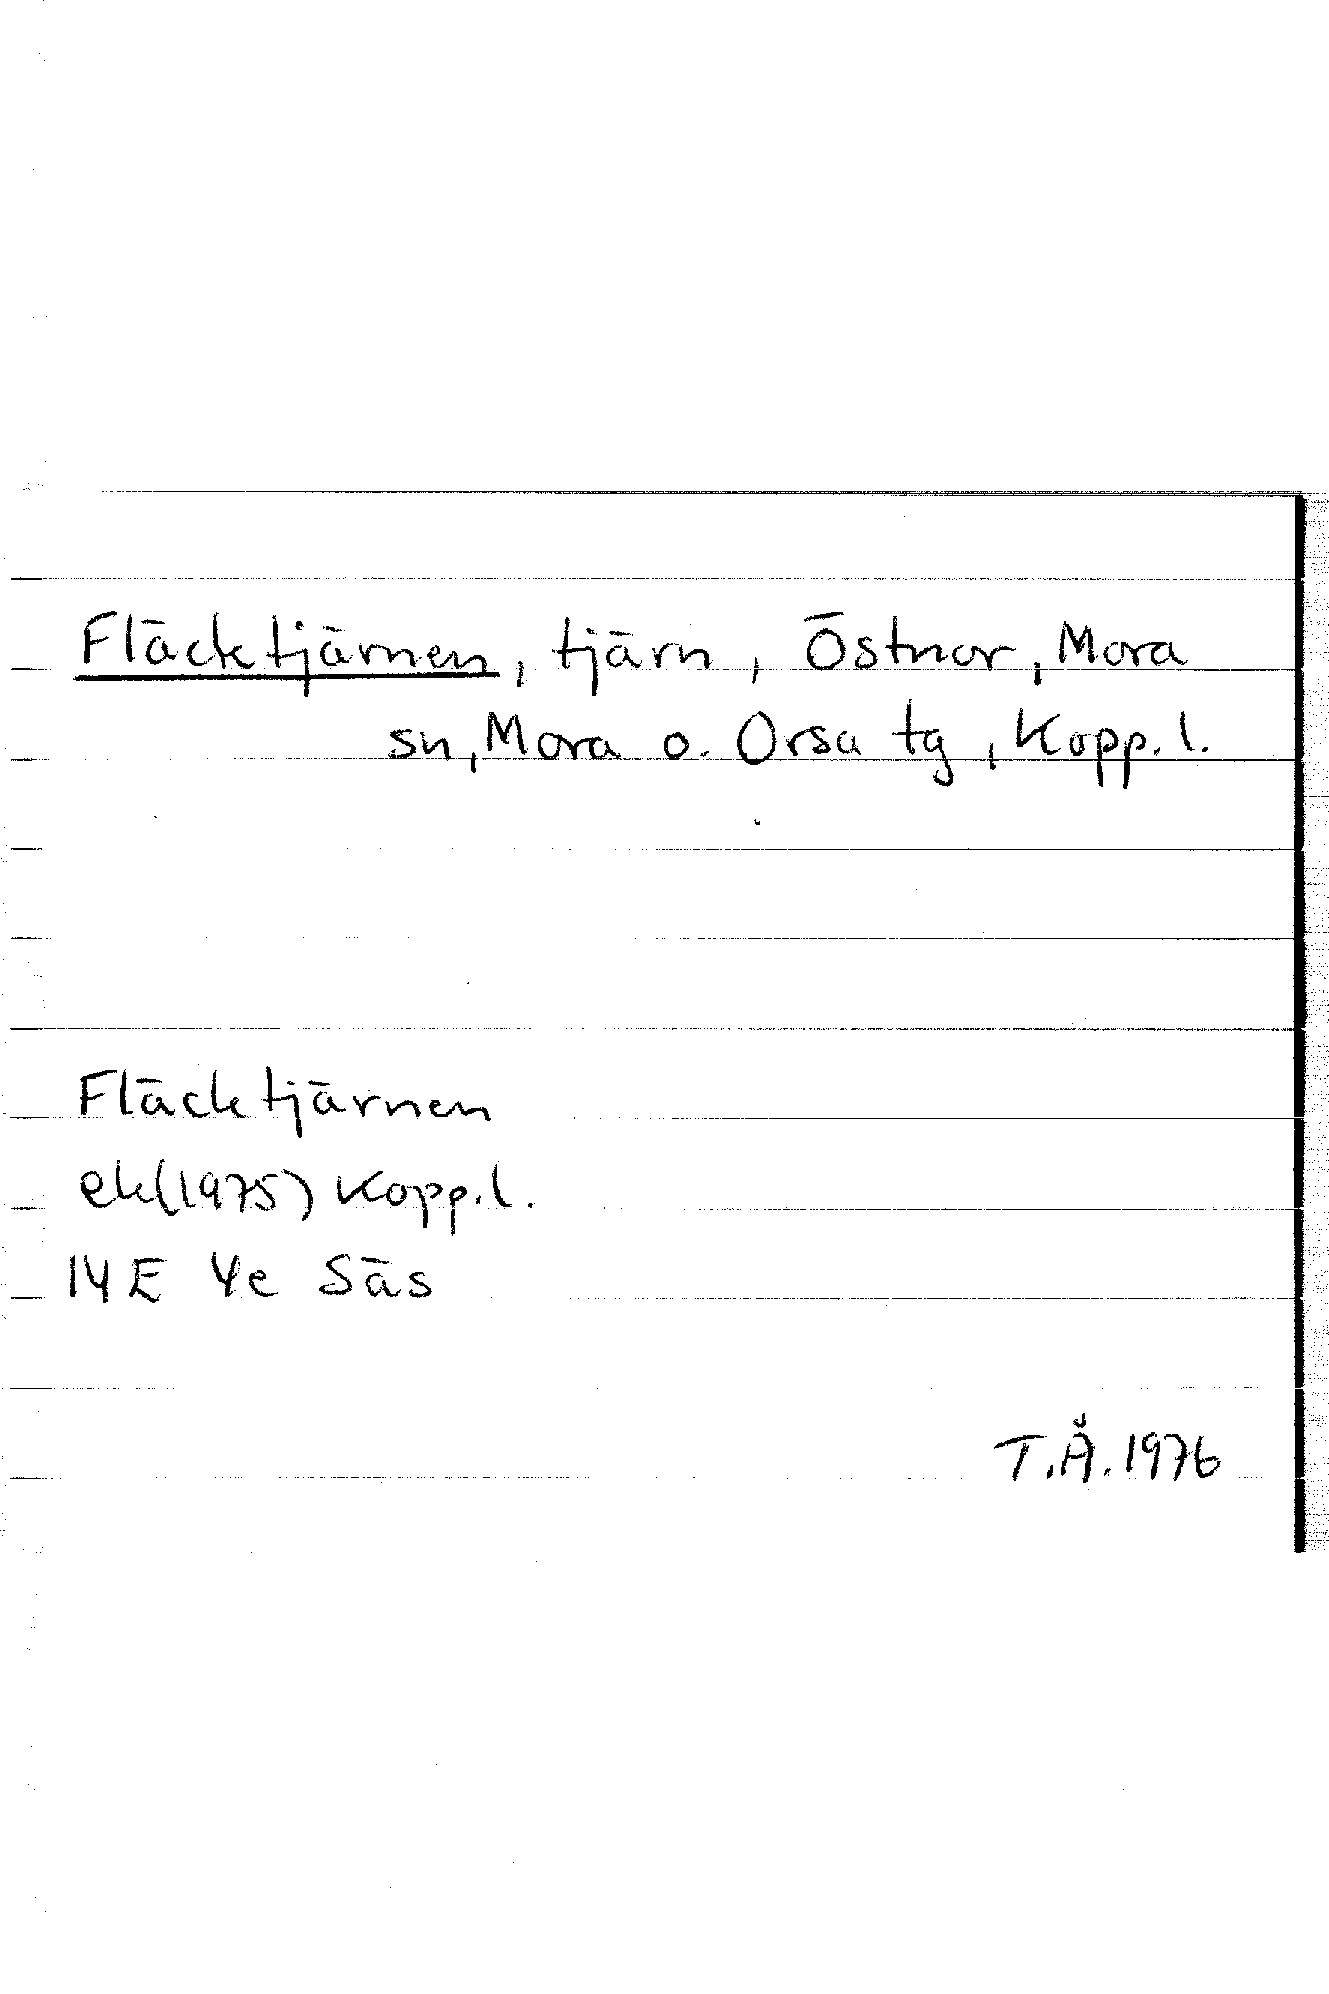 Fläcktjärnen, tjärn, Östnor, Mora
sn, Mora o. Orsa tg, Kopp.l.
Fläcktjärnen
ek(1975) Kopp.l.
14E 4e Säs
T.Å.1976